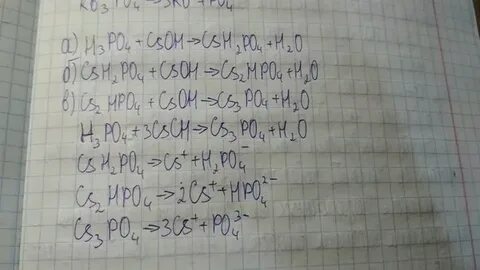 Rb₃PO₄→3Rb⁺+PO₄
а) H₃PO₄+CsOH→CsH₂PO₄+H₂O
б) CsH₂PO₄+CsOH→Cs₂HPO₄+H₂O
в) Cs₂HPO₄+CsOH→Cs₃PO₄+H₂O
H₃PO₄+3CsOH→Cs₃PO₄+H₂O
CsH₂PO₄→Cs⁺+H₂PO₄⁻
Cs₂HPO₄→2Cs⁺+HPO₄²⁻
Cs₃PO₄→3Cs⁺+PO₄³⁻